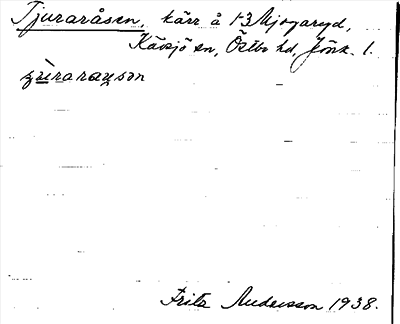 Tjuraråsen, kärr å 1-3 Mjogaryd,
Kävsjö sn, Östbo hd, Jönk. l.
ʒùraraʒsən
Frits Andersson 1938.